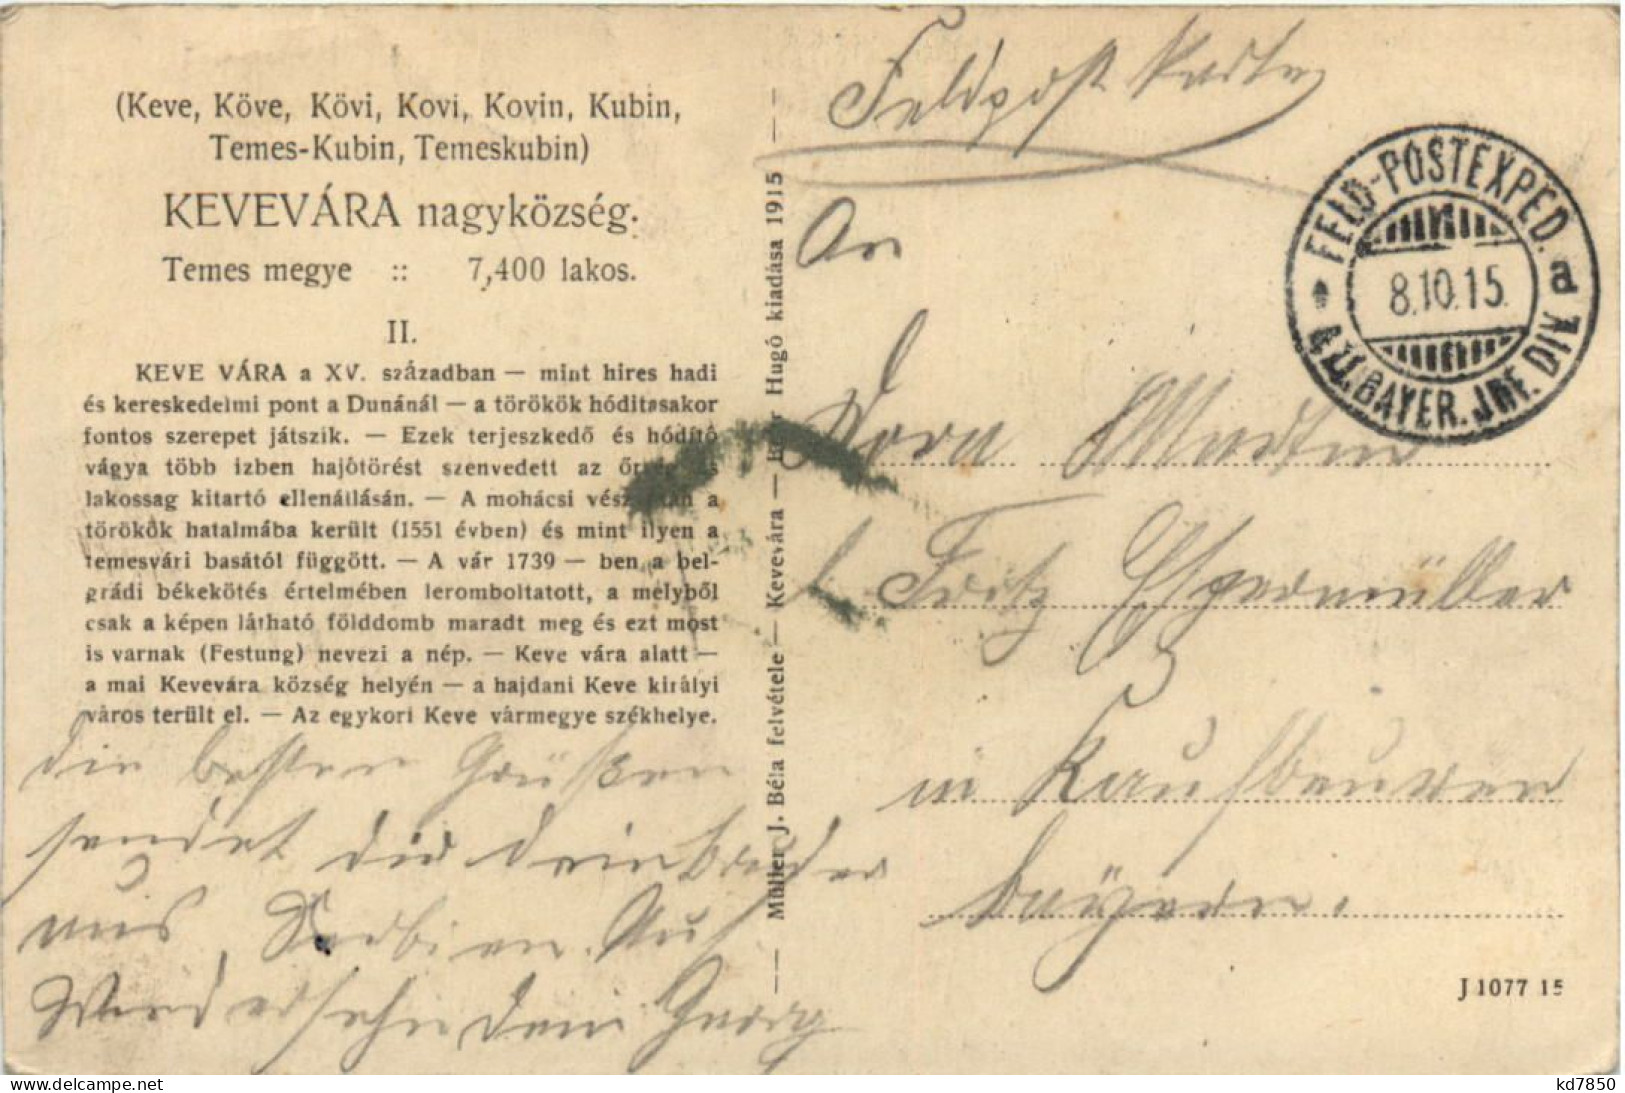 (Keve, Köve, Kövi, Kovi, Kovin, Kubin,
Temes-Kubin, Temeskubin)
KEVEVÁRA nagyközség.
Temes megye :: 7,400 lakos.
II.
KEVE VÁRA a XV. században — mint hires hadi
és kereskedelmi pont a Dunánál — a törökök hóditásakor
fontos szerepet játszik. — Ezek terjeszkedő és hóditó
vágya több izben hajótörést szenvedett az őrség és
lakossag kitartó ellenállásán. — A mohácsi vész után a
törökök hatalmába került (1551 évben) és mint ilyen a
temesvári basától függött. — A vár 1739 — ben a bel-
grádi békekötés értelmében leromboltatott, a melyből
csak a képen látható földdomb maradt meg és ezt most
is varnak (Festung) nevezi a nép. — Keve vára alatt —
a mai Kevevára község helyén — a hajdani Keve királyi
város terült el. — Az egykori Keve vármegye székhelye.
die besten Grüßen
sendet dir dein Bruder
aus Serbien. Auf
Wiedersehn dein Georg
Müller J. Béla felvétele — Kevevára — Hugó kiadása 1915
Feldpost Karte
FELD-POSTEXPED. a
8.10.15.
BAYER. INF. DIV.
An
Dora Martin
Fritz Espermüller
in Kaufbeuren
Bayern.
J 1077 15
kd7850
www.delcampe.net